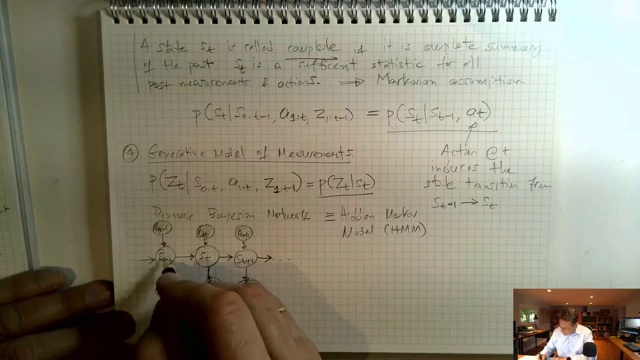 A state St is called complete if it is complete summary
of the past St is a sufficent statistic for all
past measurements & actions. ⟹ Markovian assumption
p(St|S0:t-1, a1:t, Z1:t-1) = p(St|St-1, at)
④ Generative Model of Measurements
Action @ t
induces the
state transition from
St-1 → St
p(Zt|S0:t, a1:t, Z1:t-1) = p(Zt|St)
Dynamic Bayesian Network ≡ Hidden Markov
Model (HMM)
at-1 at at+1
St-1 St St+1 ...